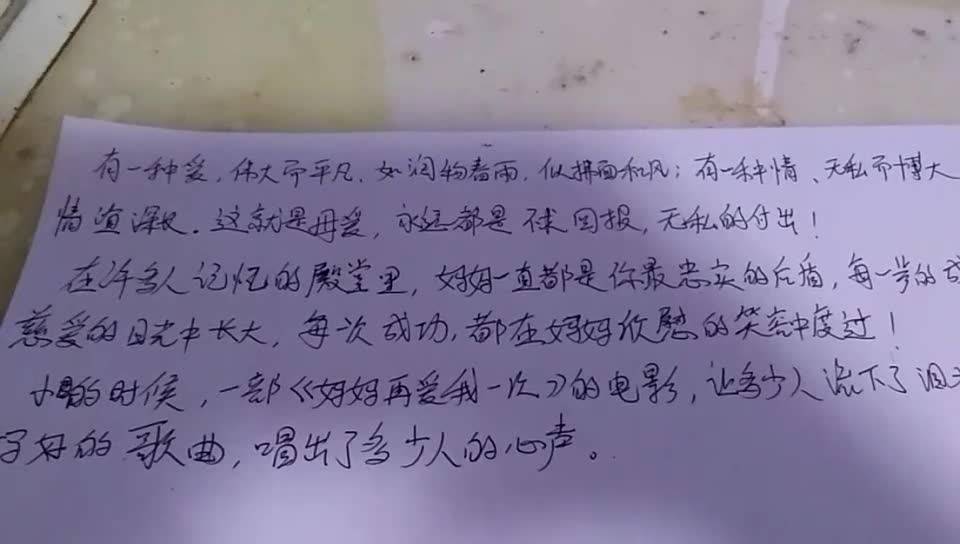 有一种爱，伟大而平凡，如润物春雨，似拂面和风；有一种情、无私而博大
情道深长．这就是母爱，永远都是不求回报，无私的付出！
在许多人记忆的殿堂里，妈妈一直都是你最忠实的后盾，每一步的成
慈爱的目光中长大，每次成功，都在妈妈欣慰的笑容中度过！
小的时候，一部《妈妈再爱我一次》的电影，让多少人流下了泪
好的歌曲，唱出了多少人的心声。